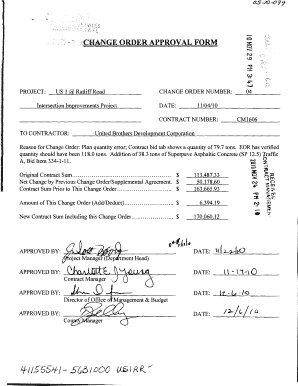 05-10-099
CHANGE ORDER APPROVAL FORM
10 NOV 29 PM 3:47
PROJECT: US 1 @ Ratliff Road CHANGE ORDER NUMBER: 04
Intersection Improvements Project DATE: 11/04/10
CONTRACT NUMBER: CM1606
TO CONTRACTOR: United Brothers Development Corporation
Reason for Change Order: Plan quantity error; Contract bid tab shows a quantity of 79.7 tons. EOR has verified
quantity should have been 118.0 tons. Addition of 38.3 tons of Superpave Asphaltic Concrete (SP 12.5) Traffic
A, Bid Item 334-1-11.
Original Contract Sum $ 113,487.33
Net Change by Previous Change Order/Supplemental Agreement $ 50,178.60
Contract Sum Prior to This Change Order $ 163,665.93
Amount of This Change Order (Add/Deduct) $ 6,394.19
New Contract Sum Including this Change Order $ 170,060.12
RECEIVED
CONTRACT MANAGEMENT
APPROVED BY: DATE: 11/22/10
Project Manager (Department Head)
APPROVED BY: Charlotte J Young DATE: 11-17-10
Contract Manager
APPROVED BY: DATE: 12-6-10
Director of Office of Management & Budget
APPROVED BY: DATE: 12/6/10
County Manager
41155541-5631000 USIRR